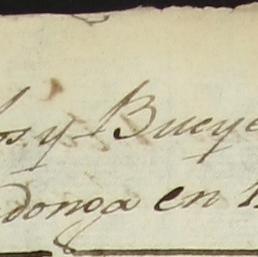 os y Bueye
donga en 1